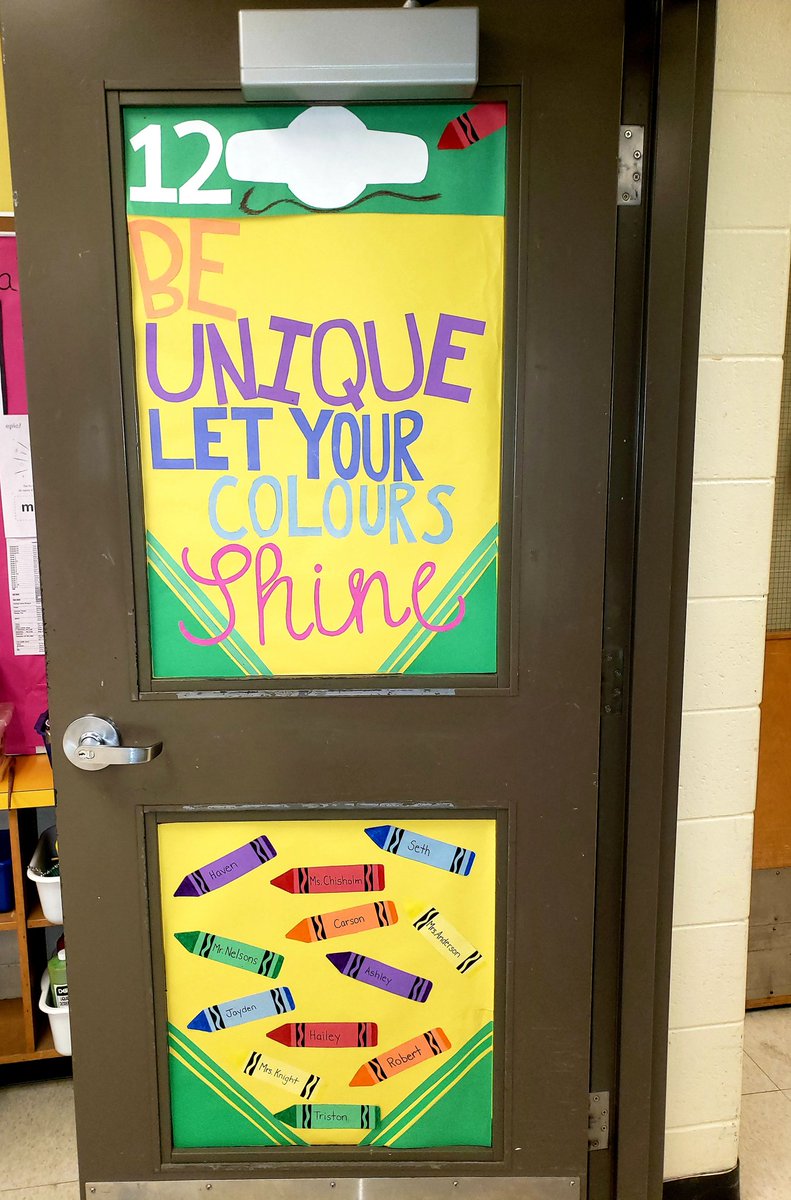 12
BE
UNIQUE
LET YOUR
COLOURS
Shine
a
epic!
m
Haven
Seth
Ms. Chisholm
Carson
Mrs. Anderson
Mr. Nelsons
Ashley
Jayden
Hailey
Robert
Mrs. Knight
Triston